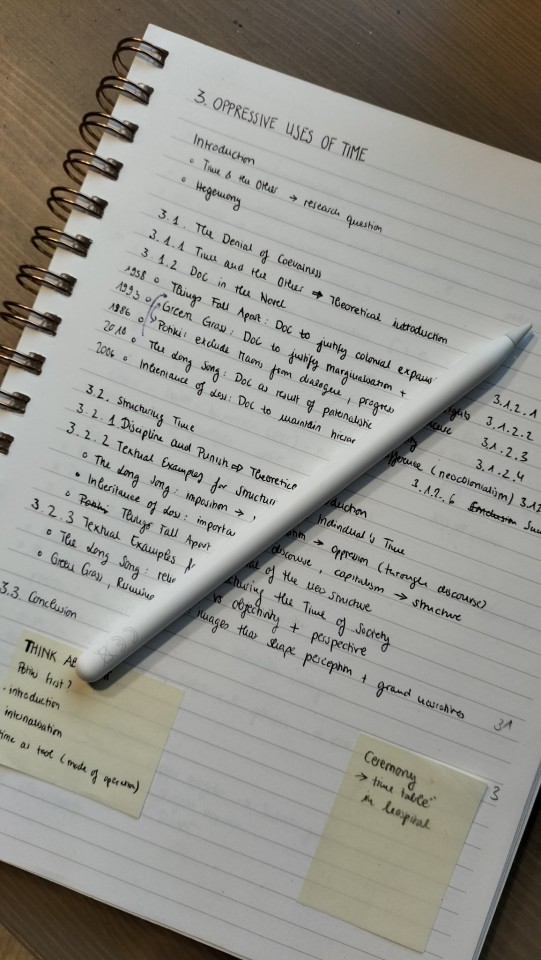 3. OPPRESSIVE USES OF TIME
Introduction
Time & the Other → research question
Hegemony
3.1. The Denial of Coevalness
3.1.1 Time and the Other → Theoretical introduction
3.1.2 DoC in the Novel
1958 Things Fall Apart: DoC to justify colonial expans
1993 Green Grass: DoC to justify marginalisation +
1986 Potiki: exclude Maori from dialogue, progress
2010 The Long Song: DoC as result of paternalistic
2006 Inheritance of Loss: DoC to maintain hierar
3.1.2.1
3.1.2.2
3.1.2.3
3.1.2.4
(neocolonialism) 312
3.1.2.6 Conclusion
3.2. Structuring Time
3.2.1 Discipline and Punish → Theoretice
duction
3.2.2 Textual Examples for Structuri
Individual's Time
The Long Song: imposition →
→ oppression (through discourse)
Inheritance of Loss: importa
discourse, capitalism → structure
Potiki Things Fall Apart
of the new structure
3.2.3 Textual Examples
cturing the Time of Society
The Long Song: rele
vs objectivity + perspective
Green Grass, Running
images that shape perception + grand narratives
3.3 Conclusion
31
THINK AB
Potiki first?
introduction
internalisation
time as tool (mode of operation)
3
Ceremony
→ "time table"
in hospital